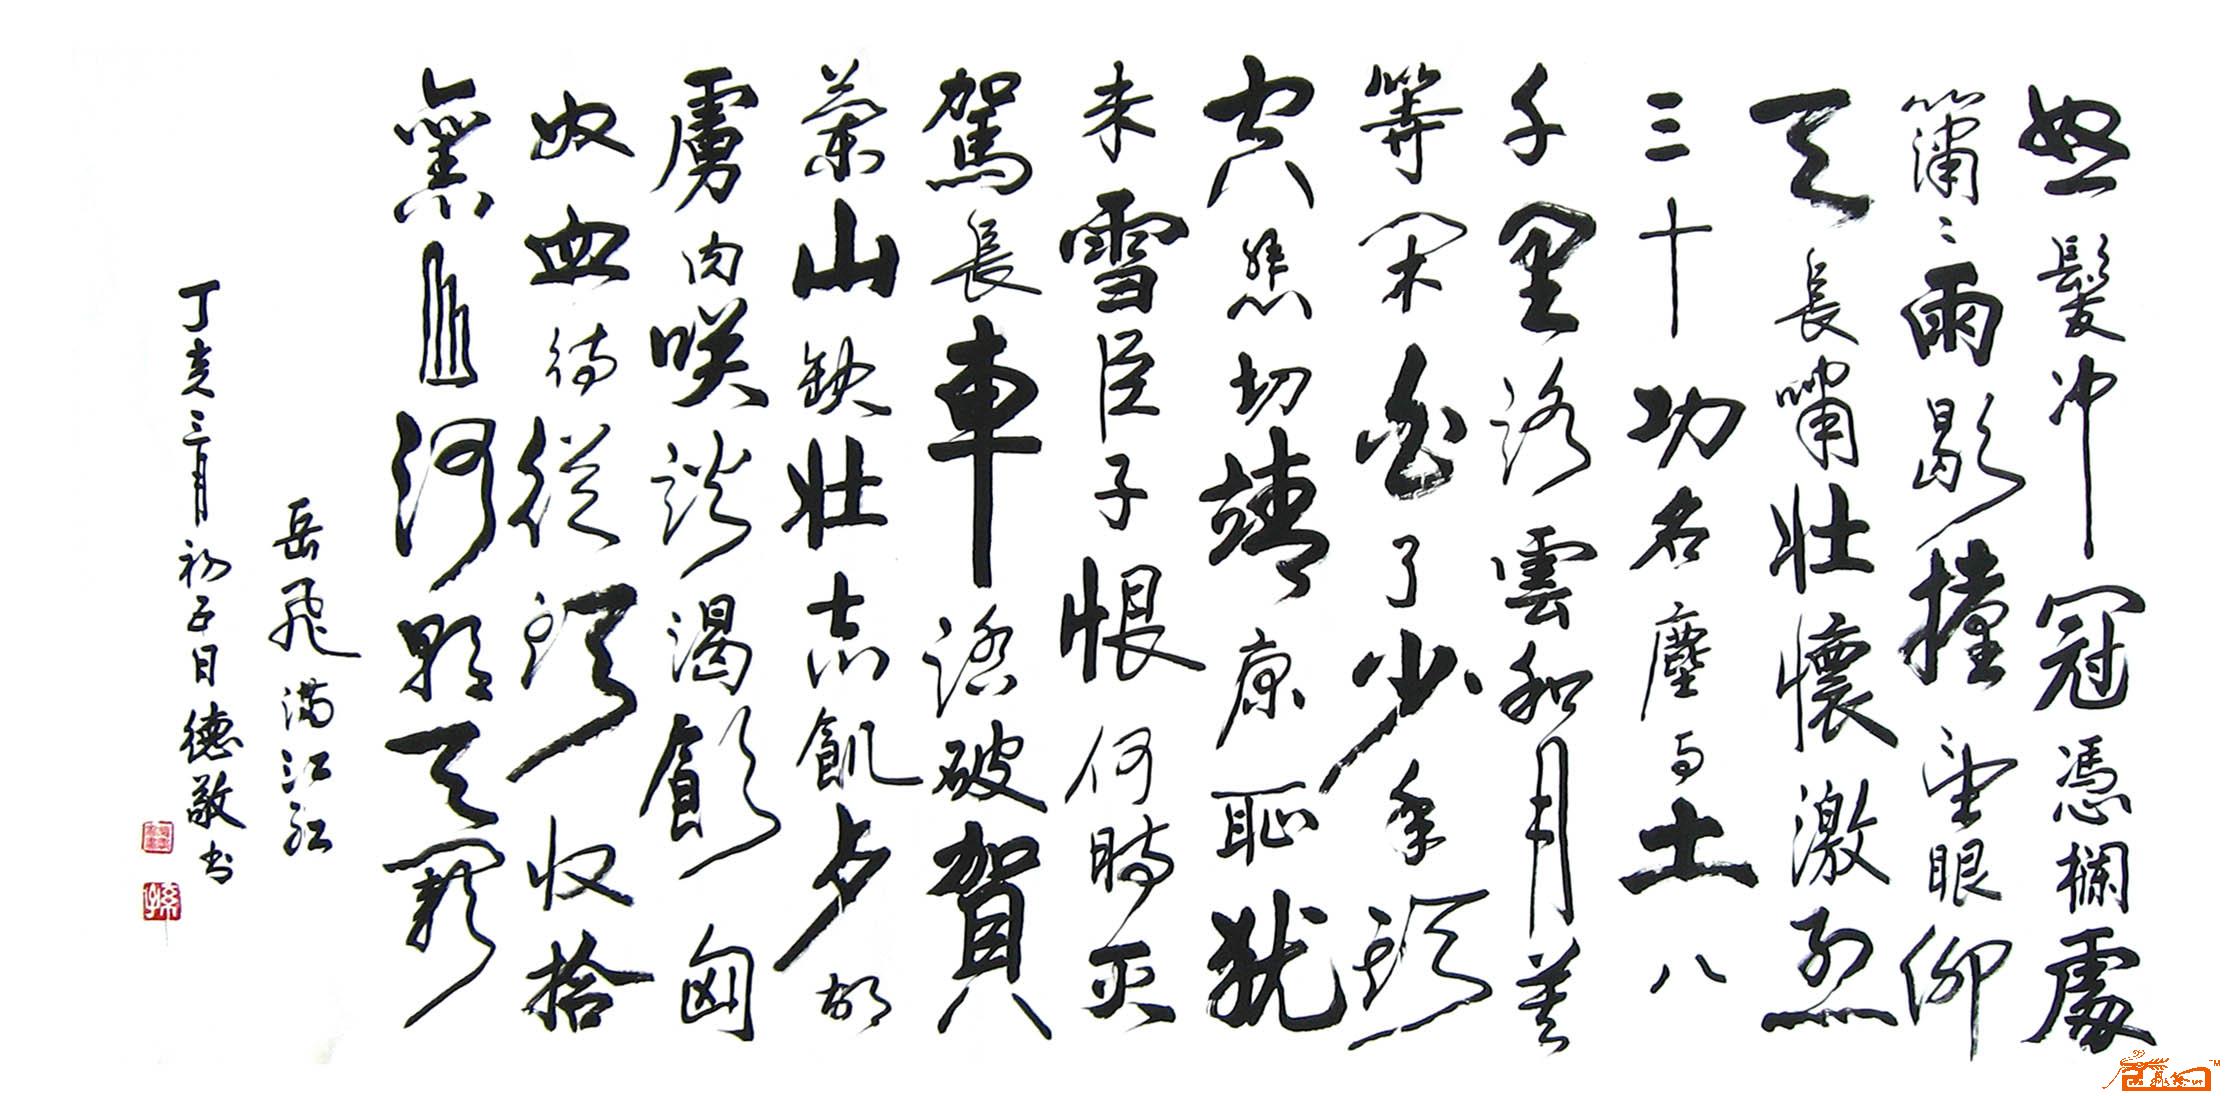 怒髮冲冠憑欄處
瀟〻雨歇擡望眼仰
天長嘯壯懷激烈
三十功名塵与土八
千里路雲和月莫
等閑白了少年頭
空悲切靖康恥猶
未雪臣子恨何時灭
駕長車踏破賀
蘭山缺壯志飢歺胡
虜肉咲談渴飲匈
奴血待從頭收拾
舊山河朝天闕
岳飛滿江紅
丁亥三月初五日德敬书
孫